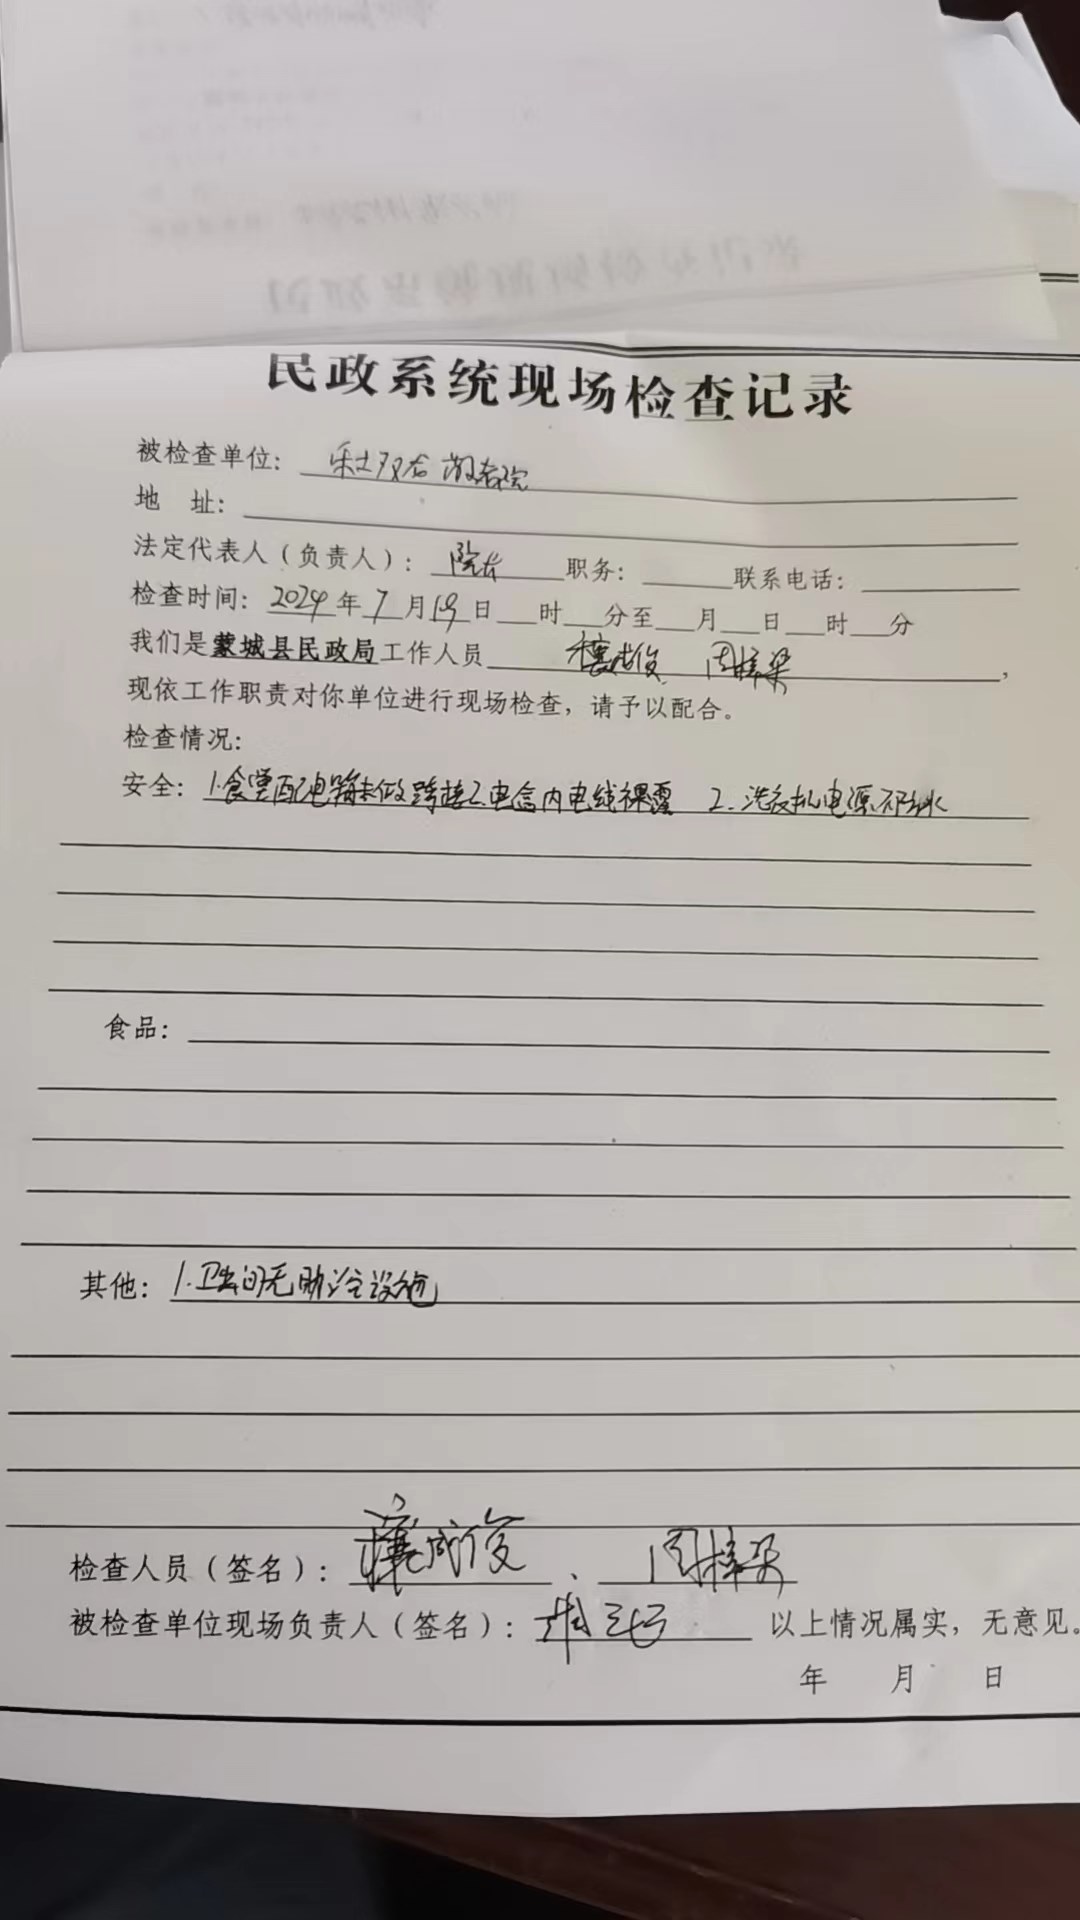 民政系统现场检查记录
被检查单位: 乐土双龙敬老院
地 址:
法定代表人(负责人): 院长 职务: 联系电话:
检查时间: 2024年7月19日 时 分至 月 日 时 分
我们是蒙城县民政局工作人员
现依工作职责对你单位进行现场检查,请予以配合。
检查情况:
安全: 1.食堂配电箱未做跨接 电盒内电线裸露 2.洗衣机电源不防水
食品:
其他: 1.卫生间无助浴设施
检查人员(签名): 、
被检查单位现场负责人(签名): 以上情况属实,无意见。
年 月 日